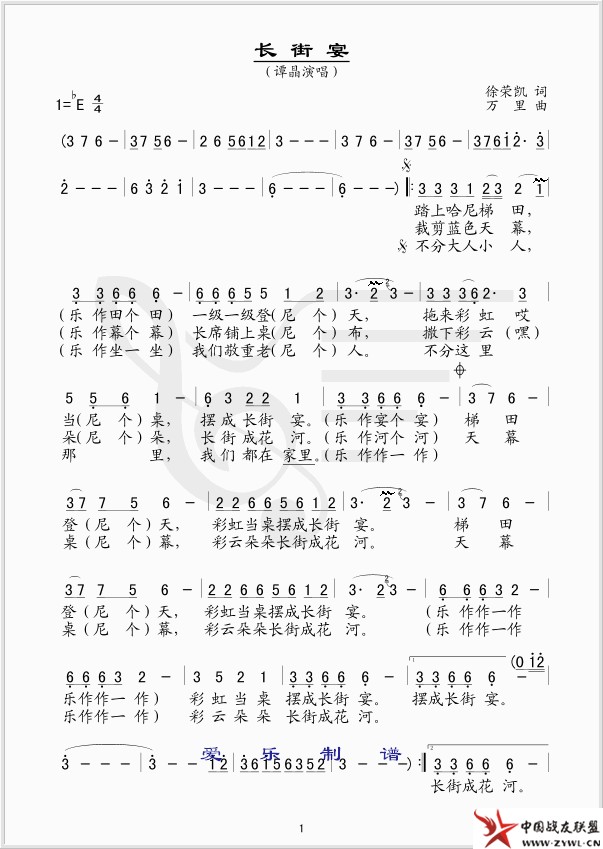 长 街 宴
（谭晶演唱）
徐荣凯 词
1=♭E 4/4
万 里 曲
(3 7 6 - | 3756 - | 2 6 5612 | 3 - - - | 3 7 6 - | 3756 - | 3761 2· 3
2 - - | 6 3 2 1 | 3 - - - | 6 - - - | 6 - - - ) ‖: 3 3 3 1 23 2 1
踏上哈尼梯 田，
裁剪蓝色天 幕，
不分大人小 人，
3 3 6 6 - | 6 6 6 5 5 1 2 | 3· 2 3 - | 3 3 3 6 2· 3
（乐 作田个 田） 一级一级登（尼 个）天， 拖来彩 虹 哎
（乐 作幕个 幕） 长席铺上桌（尼 个）布， 撒下彩 云（嘿）
（乐 作坐一 坐） 我们敬重老（尼 个）人。 不分这 里
5 5 6 1 - | 6 6 3 2 2 1 | 3· 3 6 6 - | 3 7 6 -
当（尼 个）桌， 摆 成长街 宴。（乐 作宴个 宴） 梯 田
朵（尼 个）朵， 长 街成花 河。（乐 作河个 河） 天 幕
那 里， 我们 都在 家里。（乐 作作一 作）
3 7 7 5 6 - | 2 2 6 6 5 6 1 2 | 3· 2 3 - | 3 7 6 -
登（尼 个）天， 彩虹当桌摆成长街 宴。 梯 田
桌（尼 个）幕， 彩云朵朵长街成花 河。 天 幕
3 7 7 5 6 - | 2 2 6 6 5 6 1 2 | 3 - - - | 6 6 6 3 2
登（尼 个）天， 彩虹当桌摆成长街 宴。 （乐 作作一作
桌（尼 个）幕， 彩云朵朵长街成花 河。 （乐 作作一作
(0 12
6 6 6 3 2 - | 3 5 2 1 | 3 3 6 6 6 - | 1. 3 3 6 6 6 -
乐作作一 作） 彩 虹 当 桌 摆成长街 宴。 摆成长街 宴。
乐作作一 作） 彩 云 朵 朵 长街成花 河。
爱 乐 制 谱
3 - - - | 3 - - 12 | 36156352 | 3 - - - ) :‖ 2. 3 3 6 6 6 -
长街成花 河。
1
中国战友联盟
-www.ZYWL.CN-